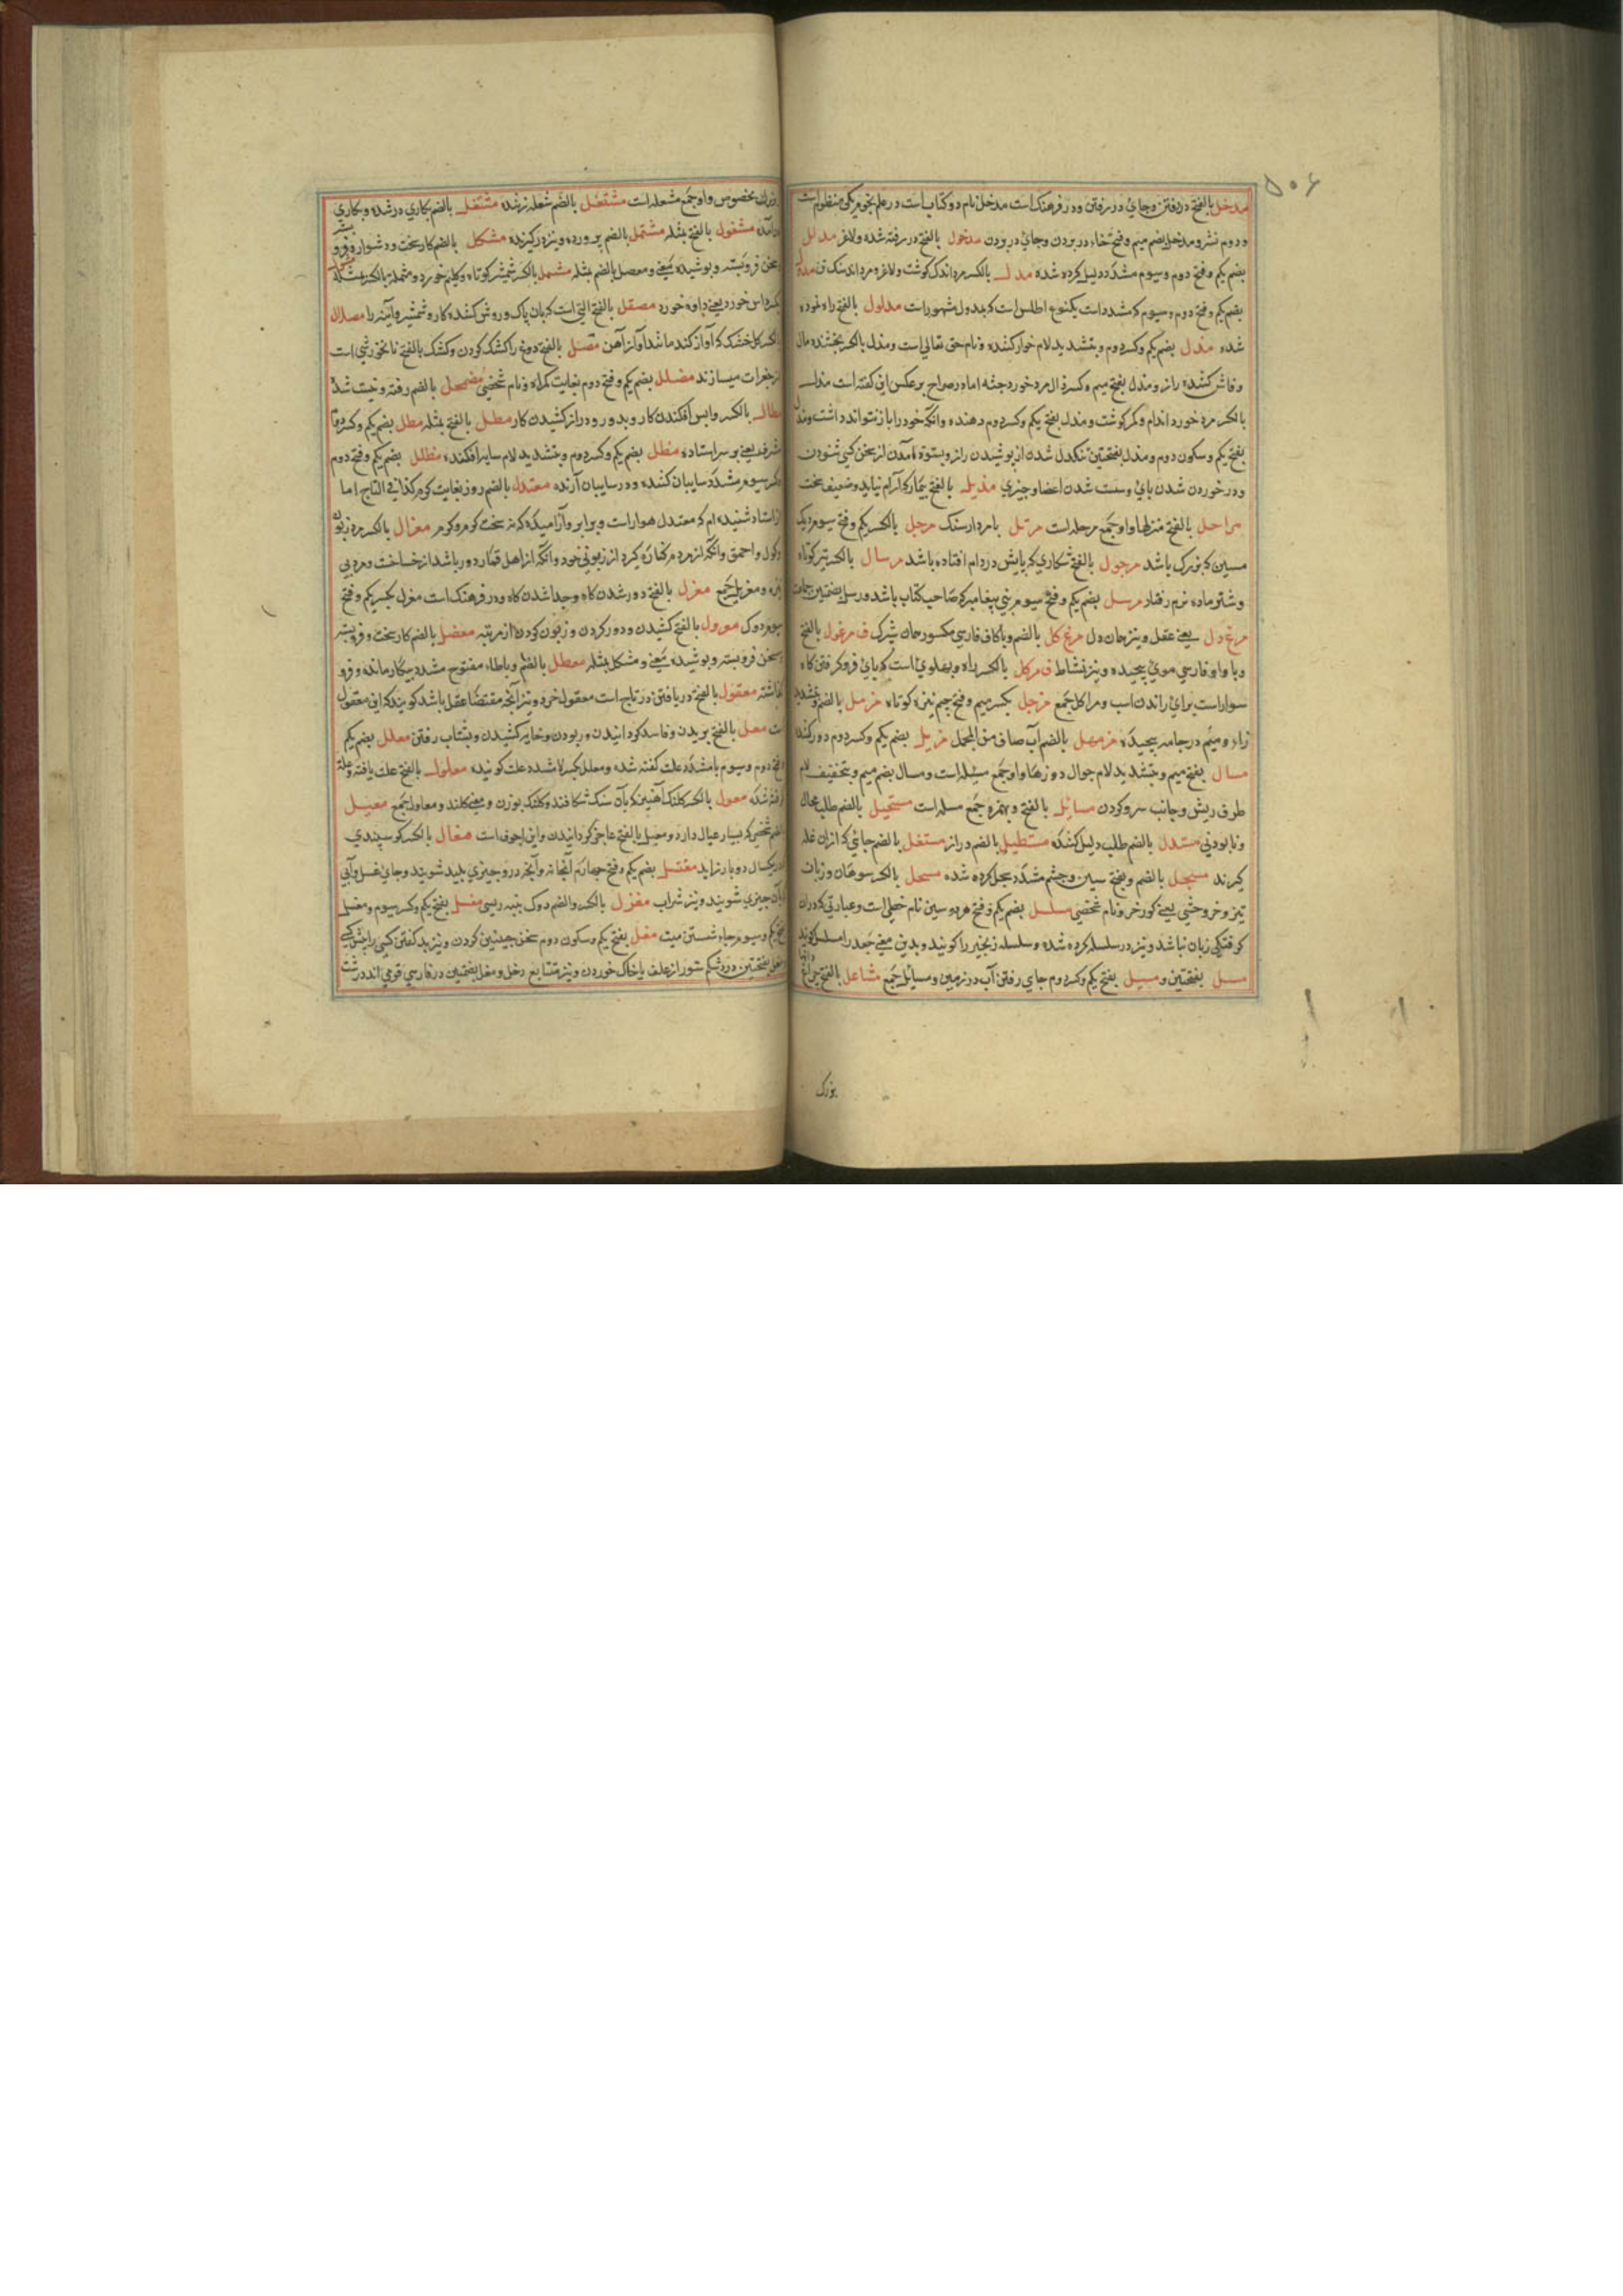 ٥٠٦
مدخل بالفتح دررفتن وجای دررفتن ودر فرهنک است مدخل نام دو کتاب است در علم نجوم یکی منظوم است
ودوم نثر ومدخل بضم میم وفتح خاء در بردن وجای در بردن مدخول بالفتح در رفته شده ولاغر مدلل
بضم یکم وفتح دوم وسیوم مشدد دلیل کرده شده مدل بالکسر مرد اندک کوشت ولاغر
بضم یکم وفتح دوم وسیوم که مشدد است یکنوع اطلس است که بمدول مشهور است مدلول بالفتح راه نموده
شده مذل بضم یکم وکسر دوم وبتشدید لام خوار کننده ونام حق تعالی است ومذل بالکسر بخشنده مال
وفاش کننده راز ومذل بفتح میم وکسر ذال مرد خورد جثه اما در صراح بر عکس این کفته است مذل
بالکسر مرد خورد اندام وکم کوشت ومذل بفتح یکم وکسر دوم دهنده وانکه خود را باز نتواند داشت ومذل
بفتح یکم وسکون دوم ومذل بفتحتین تنکدل شدن از پوشیدن راز وبستوه آمدن از سخن کسی شنودن
ودر خوردن شدن پای وسست شدن اعضا وچیزی مذیل بالفتح بیمار که آرام نیابد وضعیف سخت
مراحل بالفتح منزلها واو جمع مرحله است مرتل بامردار سنک مرجل بالکسر یکم وفتح سیوم دیک
مسین که بزرک باشد مرجول بالفتح شکاری که پایش در دام افتاده باشد مرسال بالکسر تیر کوتاه
وشتر ماده نرم رفتار مرسل بضم یکم وفتح سیوم نبی پیغامبر که صاحب کتاب باشد ورسل بضمتین جماعت
مرغ دل یعنی عقل ونیز جان ودل مرغ کل بالضم وباکاف فارسی مکسور جان شیرک ف مرغول بالفتح
وبا واو فارسی موی پیچیده ونیز نشاط ف مرکل بالکسر راه وپهلوی است که پای فروکرفتن کاه
سوار است برای راندن اسب ومراکل جمع مزجل بکسر میم وفتح جیم نیزه کوتاه مزمل بالضم وبتشدید
زاء ومیم در جامه پیچیده مزمهل بالضم آب صاف من المجمل مزیل بضم یکم وکسر دوم دور کننده
مسال بفتح میم وبتشدید لام جوال دوزها واو جمع مسله است ومسال بضم میم وبتخفیف لام
طرف ریش وجانب سر وکردن مسائل بالفتح وبهمزه جمع مسله است مستحیل بالضم طلب محال
ونابودنی مستدل بالضم طلب دلیل کننده مستطیل بالضم دراز مستغل بالضم جائی که ازان غله
کیرند مسجل بالضم وبفتح سین وجیم مشدد سجل کرده شده مسحل بالکسر سوهان وزبان
تیز وخر وحشی یعنی کورخر ونام شخصی مسلسل بضم یکم وفتح هر دو سین نام خطی است وعبارتی که دران
کوفتکی زبان نباشد ونیز در سلسله کرده شده وسلسله زنجیر را کویند وبدین معنی جعد را مسلسل کویند
مسل بفتحتین ومسیل بفتح یکم وکسر دوم جای رفتن آب در زمین ومسائل جمع مشاعل بالفتح چراغ
بزرک
بزرک مخصوص واو جمع مشعله است مشتعل بالضم شعله زننده مشتغل بالضم بکاری در شده وبکاری
درآمده مشغول بالفتح مثله مشتمل بالضم بر ورده ونیز در کیرنده مشکل بالضم کار سخت ودشوار
سخن فروبسته وپوشیده معنی ومعضل بالضم مثله مشمل بالکسر شمشیر کوتاه وکلیم خورد
کرداس خورد یعنی داوه خورد مصقل بالفتح التی است که بان پاک وروشن کنند کارد وشمشیر وآینه را مصلال
بالکسر کل خشک که آواز کند مانند آواز آهن مصل بالفتح دوغ را کشک کردن وکشک بالفتح نانخورشی است
از جغرات میسازند مضلل بضم یکم وفتح دوم بغایت کمراه ونام شخصی مضمحل بالضم رفته ونیست شده
مطال بالکسر واپس افکندن کار وبدور ودراز کشیدن کار مطل بالفتح مثله مطل بضم یکم وکسر دوم
مشرف یعنی بر سر استاده مظل بضم یکم وکسر دوم وبتشدید لام سایه افکننده مظلل بضم یکم وفتح دوم
وکسر سیوم مشدد سایبان کننده ودر سایبان آرنده معتدل بالضم روز بغایت کرم کذا فی التاج اما
از استاد شنیده ام که معتدل هوار است وبرابر وآرامیده که نه سخت کرم وکرم معزال بالکسر مرد زبون
وکول واحمق وانکه از مردم کناره کیرد از زبونی خود وانکه از اهل قمار دور باشد از خساست ومرد بی
نیزه ومعازیل جمع معزل بالفتح دور شدن کاه وجدا شدن کاه ودر فرهنک است مغزل بکسر یکم وفتح
سیوم دوک معزول بالفتح کشیدن ودور کردن وزبون کردن از مرتبه معضل بالضم کار سخت وفروبسته
وسخن فروبسته وپوشیده معنی ومشکل مثله معطل بالضم وباطاء مفتوح مشدد بیکار مانده وفرو
کذاشته معقول بالفتح دریافتن در تاج است معقول خرد ونیز آنچه مقتضاء عقل باشد کویند که این معقول
است معل بالفتح بریدن وفاسد کردانیدن وربودن وخایه کشیدن وبشتاب رفتن معلل بضم یکم
وفتح دوم وسیوم بامشدد علت کفته شده ومعلل بکسر لام مشدد علت کوینده معلول بالفتح علت یافته
کرفته شده معول بالکسر کلنک آهنین که بآن سنک شکافند وکلنک بوزن ومعنی کلند ومعاول جمع معیل
بالضم شخصی که بسیار عیال دارد ومعیل بالفتح عاجز کردانیدن واین اجوف است مغال بالکسر کوسپندی
که در یکسال دو بار زاید مغتسل بضم یکم وفتح چهارم آبخانه وآبخه درو چیزی پلید شویند وجای غسل وآبی
که بآن چیزی شویند ونیز شراب مغزل بالکسر والضم دوک پنبه ریسی مغسل بفتح یکم وکسر سیوم ومغسل
بفتح یکم وسیوم جاء شستن میت مغل بفتح یکم وسکون دوم سخن چینی کردن ونیز بد کفتن کسی را پیش کسی
ومغل بفتحتین درد شکم ستور از علف باخاک خوردن ونیز متتابع دخل ومغل بضمتین در فارسی قومی اند درشت